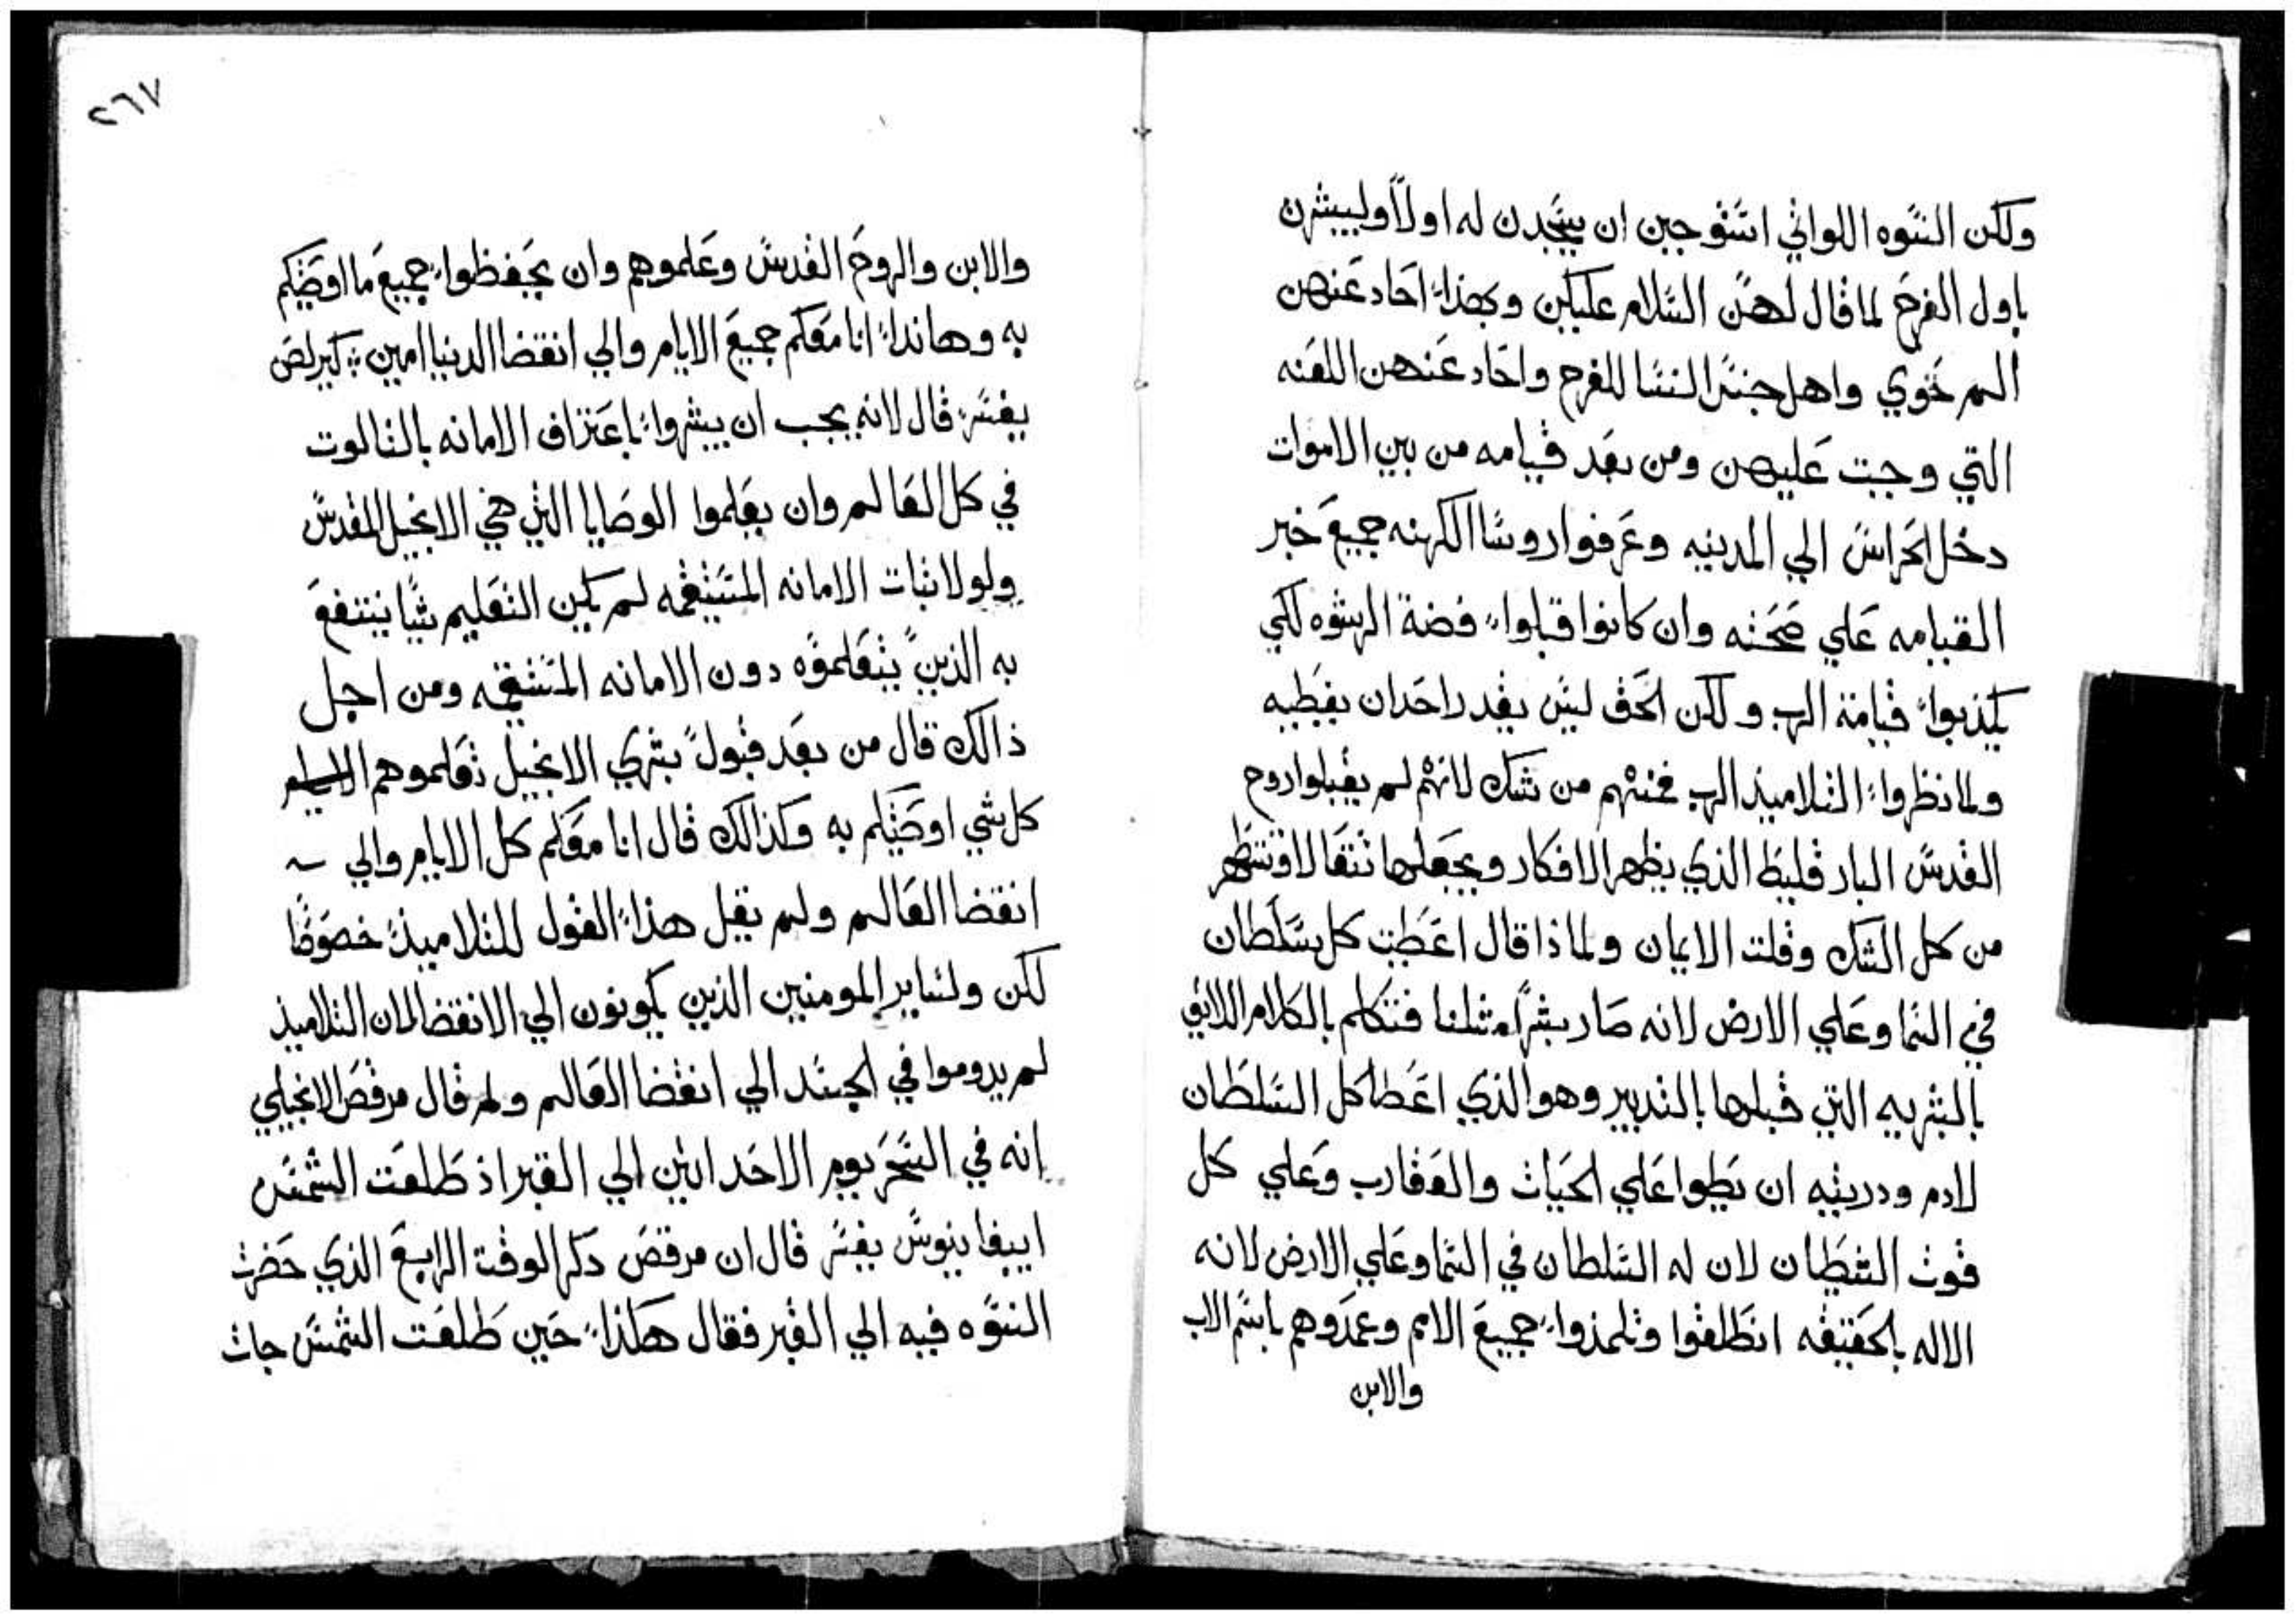 ولكن النسوه اللواتي استوجبن ان يسجدن له اولاً وليبشرن
باول الفرح لما قال لهن السلام عليكن وبهذا احاد عنهن
الم حوي واهل جنس النسا للفرح واحاد عنهن اللعنه
التي وجبت عليهن ومن بعد قيامه من بين الاموات
دخل الحراس الي المدينه وعرفوا روسا الكهنه جميع خبر
القيامه علي صحته وان كانوا قبلوا فضة الرشوه لكي
يكذبوا قيامة الرب ولكن الحق ليس يقدر احد ان يغطيه
ولما نظروا التلاميذ الرب فمنهم من شك لانهم لم يقبلوا روح
القدس البارقليط الذي يظهر الافكار ويجعلها تتقا لا وتتطهر
من كل الشك وقلت الايمان ولماذا قال اعطيت كل سلطان
في السما وعلي الارض لانه صار بشراً مثلنا فتكلم بالكلام اللائق
بالبشريه التي قبلها بالتدبير وهو الذي اعطا كل السلطان
لادم ودريته ان يطوا علي الحيات والعقارب وعلي كل
قوت الشيطان لان له السلطان في السما وعلي الارض لانه
الاله بالحقيقه انطلقوا وتلمذوا جميع الامم وعمدوهم باسم الاب
والابن
٢٦٧
والابن والروح القدس وعلموهم وان يحفظوا جميع ما اوصيتكم
به وهانذا انا معكم جميع الايام والي انقضا الدنيا امين كيرلص
يفسر قال لانه يجب ان يبشروا باعتراف الامانه بالثالوت
في كل العالم وان يعلموا الوصايا التي هي الانجيل المقدس
ولولا ثبات الامانه المستقيمه لم يكن التعليم شيا ينتفع
به الذين يتعلموه دون الامانه المستقيمه ومن اجل
ذالك قال من بعد قبول بشري الانجيل تعلموهم
كل شي اوصيتكم به وكذالك قال انا معكم كل الايام والي
انقضا العالم ولم يقل هذا القول للتلاميذ خصوصًا
لكن ولساير المومنين الذين يكونون الي الانقضا لان التلاميذ
لم يدوموا في الجسد الي انقضا العالم ولم قال مرقص الانجيلي
انه في السحر يوم الاحد اتين الي القبر اذ طلعت الشمس
ابيفانيوس يفسر قال ان مرقص دكر الوقت الرابع الذي حضرت
النسوه فيه الي القبر فقال هكذا حين طلعت الشمس جات